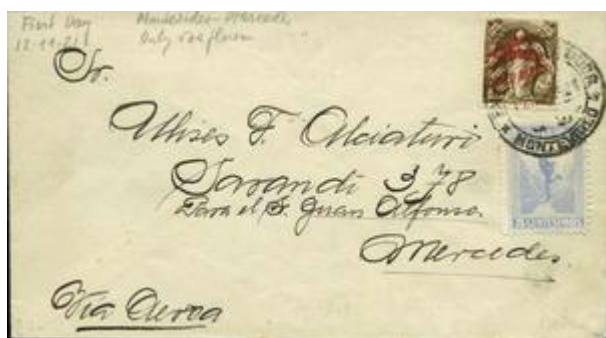 First Day Montevideo - Mercedes
12-11-21 Only
Sr.
Ulises F. Alciaturi
Sarandi 378
Para el S. Juan Alfonso.
Mercedes.
Via Aerea
MONTEVIDEO